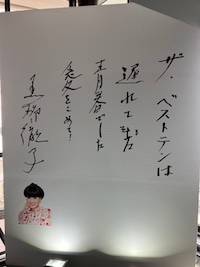 ザ・ベストテンは
遅れて来た
青春でした
愛をこめて!
黒柳徹子